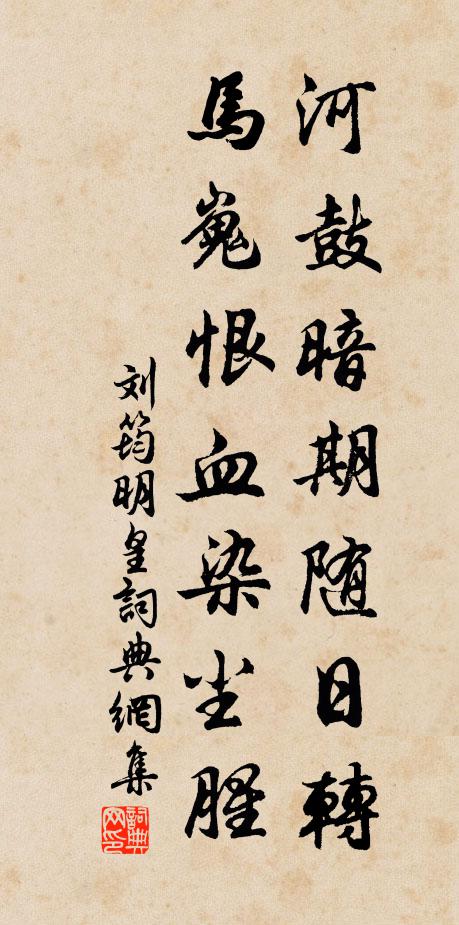 河鼓暗期随日轉
馬嵬恨血染尘腥
刘筠明皇詞典網集
詞典网印